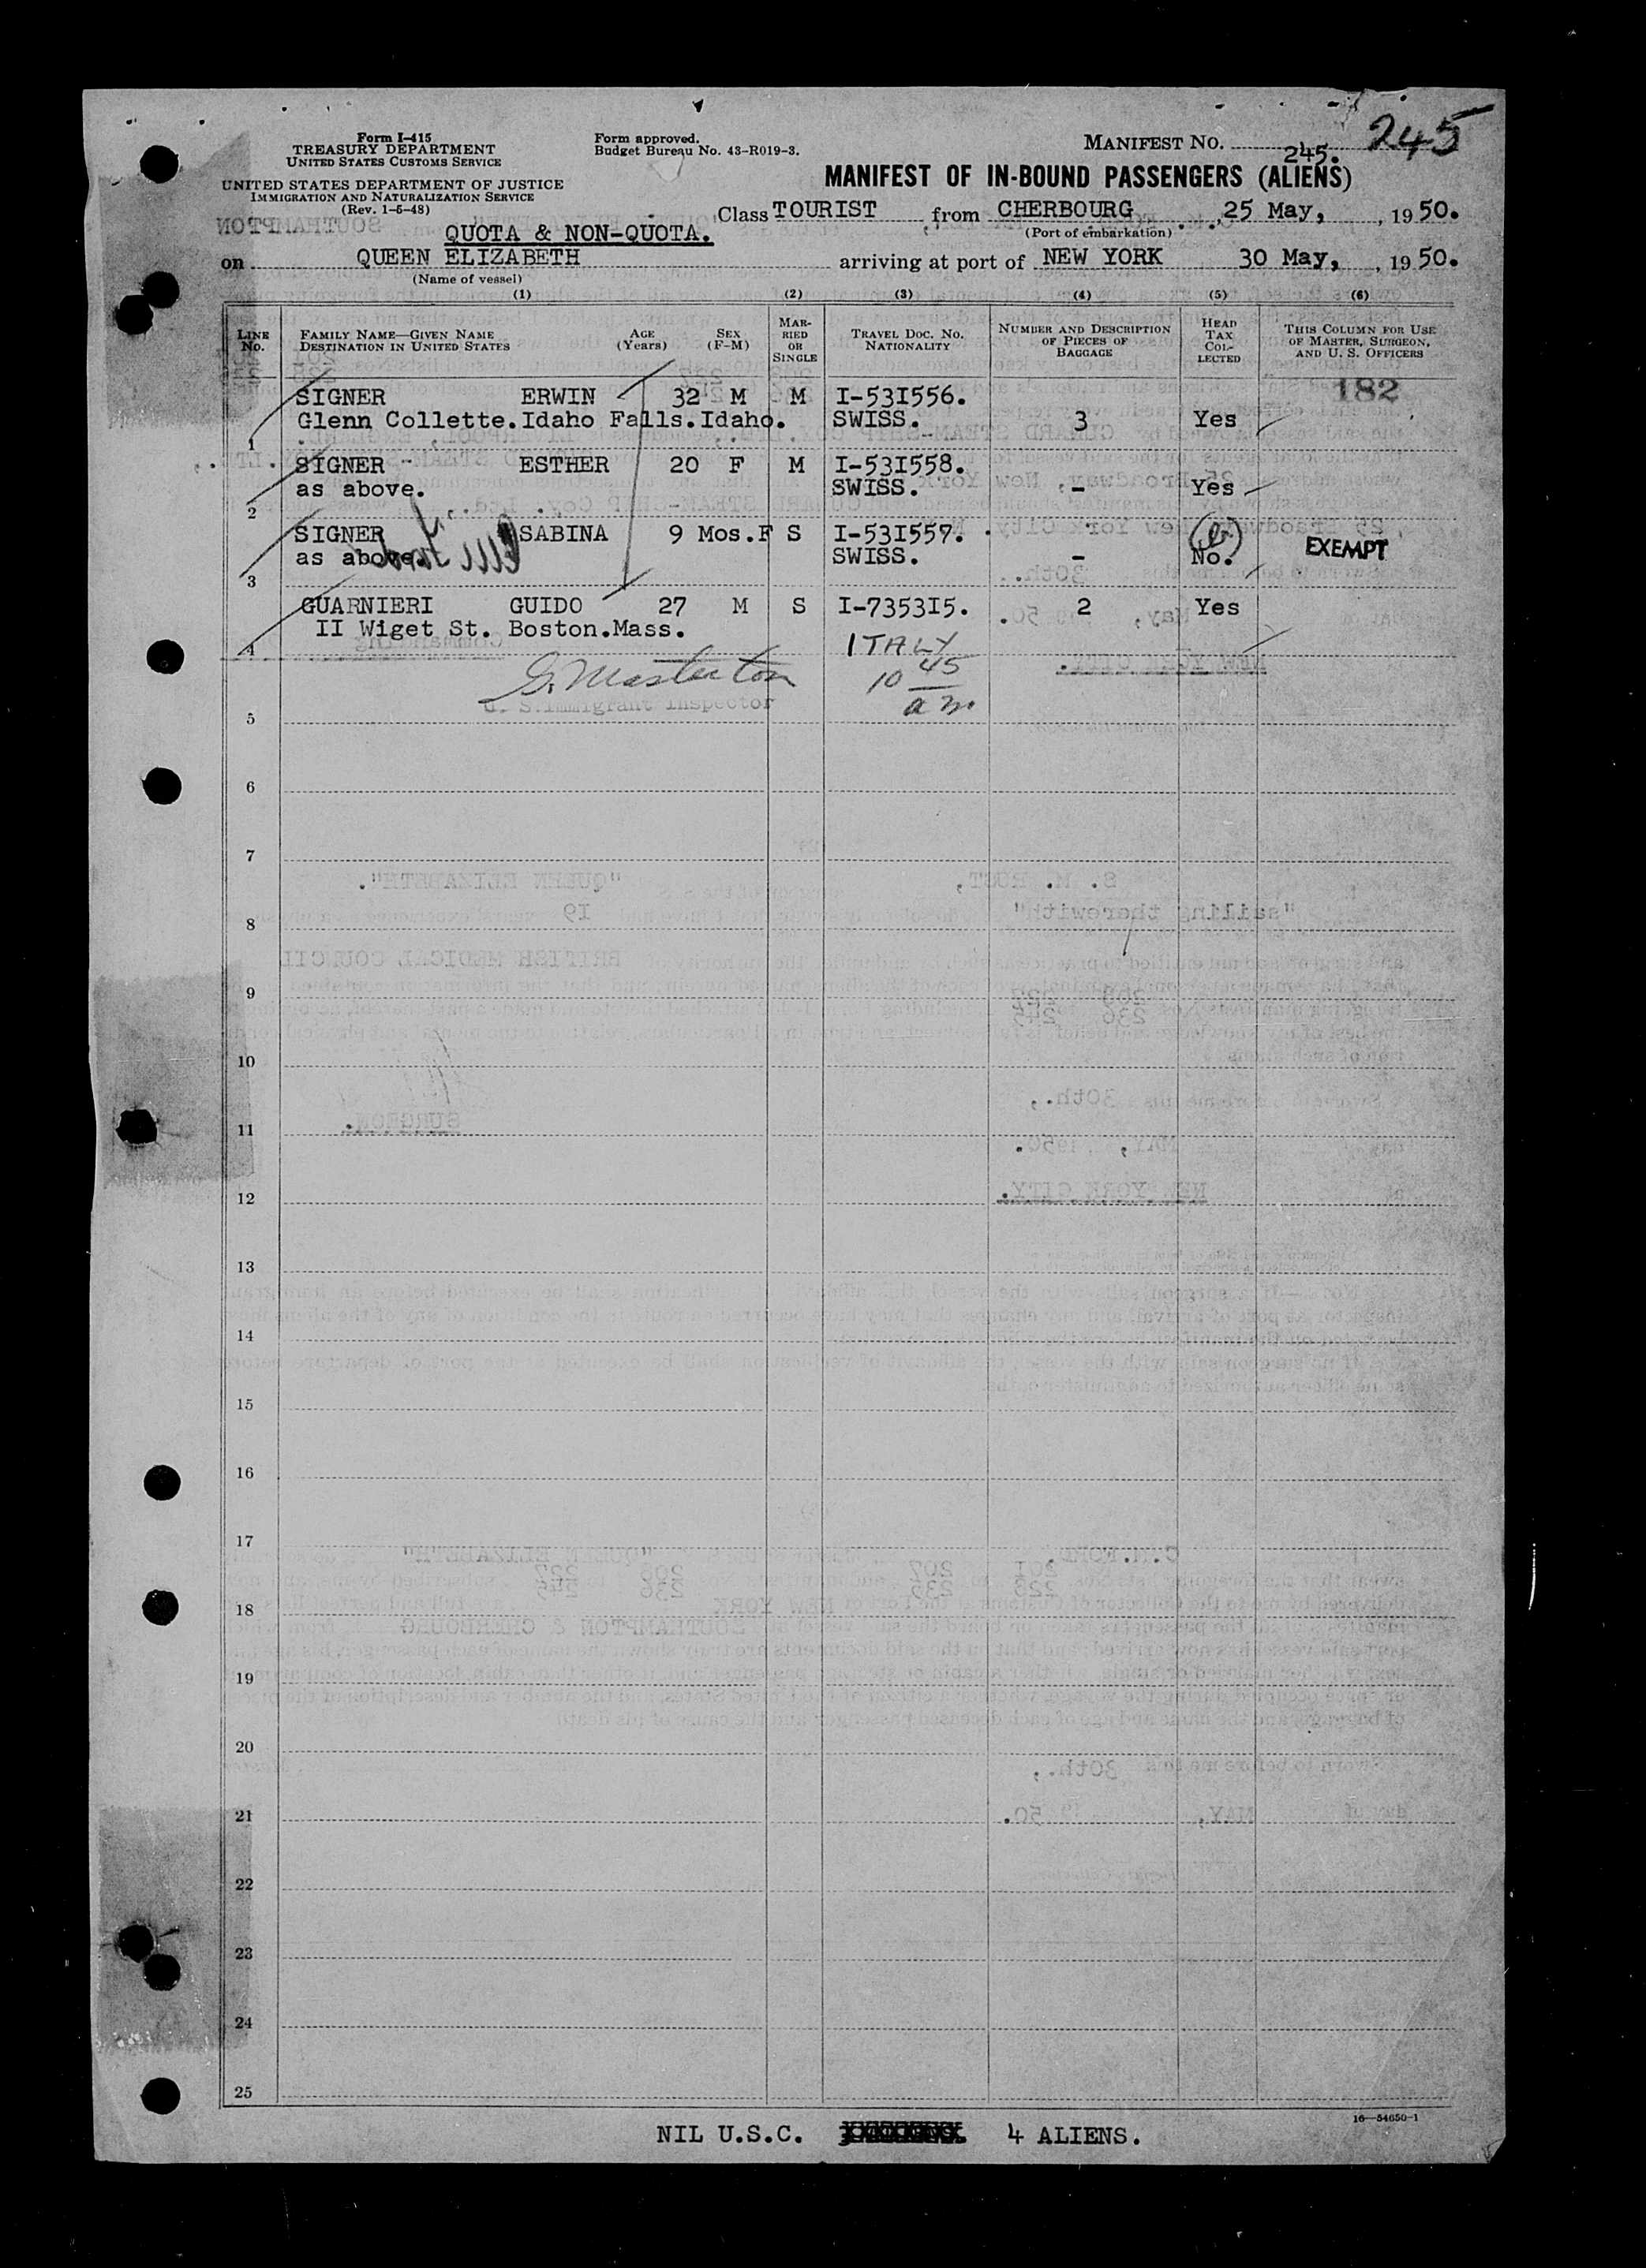 Form I-415
TREASURY DEPARTMENT
UNITED STATES CUSTOMS SERVICE
UNITED STATES DEPARTMENT OF JUSTICE
IMMIGRATION AND NATURALIZATION SERVICE
(Rev. 1-5-48)
Form approved.
Budget Bureau No. 43-R019-3.
MANIFEST NO. 245. 245
MANIFEST OF IN-BOUND PASSENGERS (ALIENS)
Class TOURIST from CHERBOURG, 25 May, , 19 50.
(Port of embarkation)
QUOTA & NON-QUOTA.
on QUEEN ELIZABETH arriving at port of NEW YORK 30 May, , 19 50.
(Name of vessel)
(1) (2) (3) (4) (5) (6)
LINE No. FAMILY NAME—GIVEN NAME DESTINATION IN UNITED STATES AGE (Years) SEX (F-M) MARRIED OR SINGLE TRAVEL DOC. NO. NATIONALITY NUMBER AND DESCRIPTION OF PIECES OF BAGGAGE HEAD TAX COLLECTED THIS COLUMN FOR USE OF MASTER, SURGEON, AND U. S. OFFICERS
182
SIGNER ERWIN 32 M M I-53I556.
1 Glenn Collette.Idaho Falls.Idaho. SWISS. 3 Yes
SIGNER ESTHER 20 F M I-53I558.
2 as above. SWISS. - Yes
SIGNER SABINA 9 Mos.F S I-53I557.
3 as above. SWISS. - No. EXEMPT
GUARNIERI GUIDO 27 M S I-7353I5. 2 Yes
4 II Wiget St. Boston.Mass.
ITALY
G. Masterton 10 45
U. S.Immigrant Inspector a m.
5
6
7
8
9
10
11
12
13
14
15
16
17
18
19
20
21
22
23
24
25
16—54650-1
NIL U.S.C. 4 ALIENS.